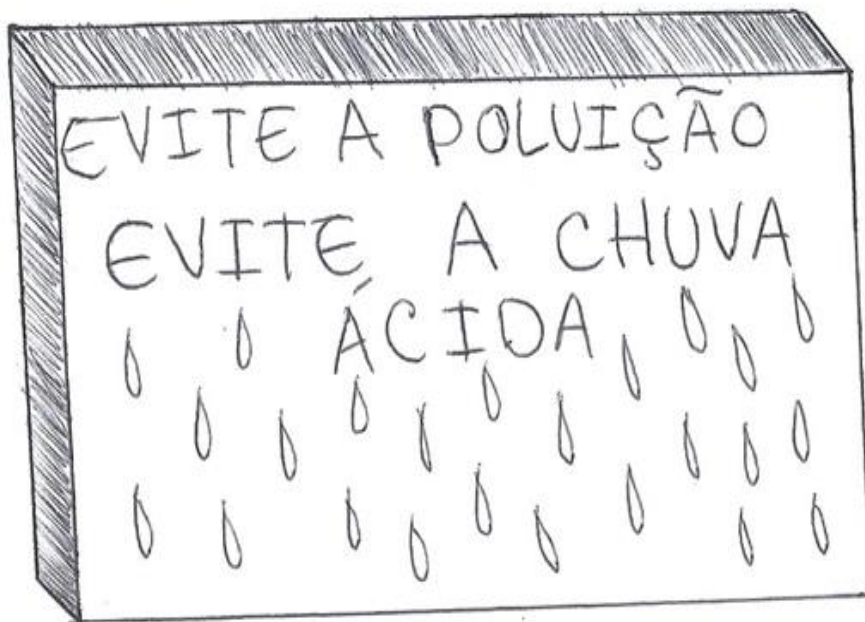 EVITE A POLUIÇÃO
EVITE A CHUVA
ÁCIDA